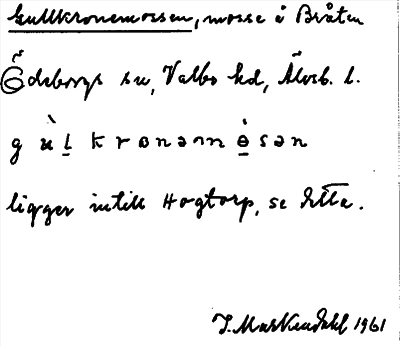 Gullkronemossen, mosse å Bråten
Ödeborgs sn, Valbo hd, Älvsb. l.
g ù l̲ k r ɷ n ə m ò̲ s ə n
ligger intill Hogtorp, se detta.
J. Markendahl 1961